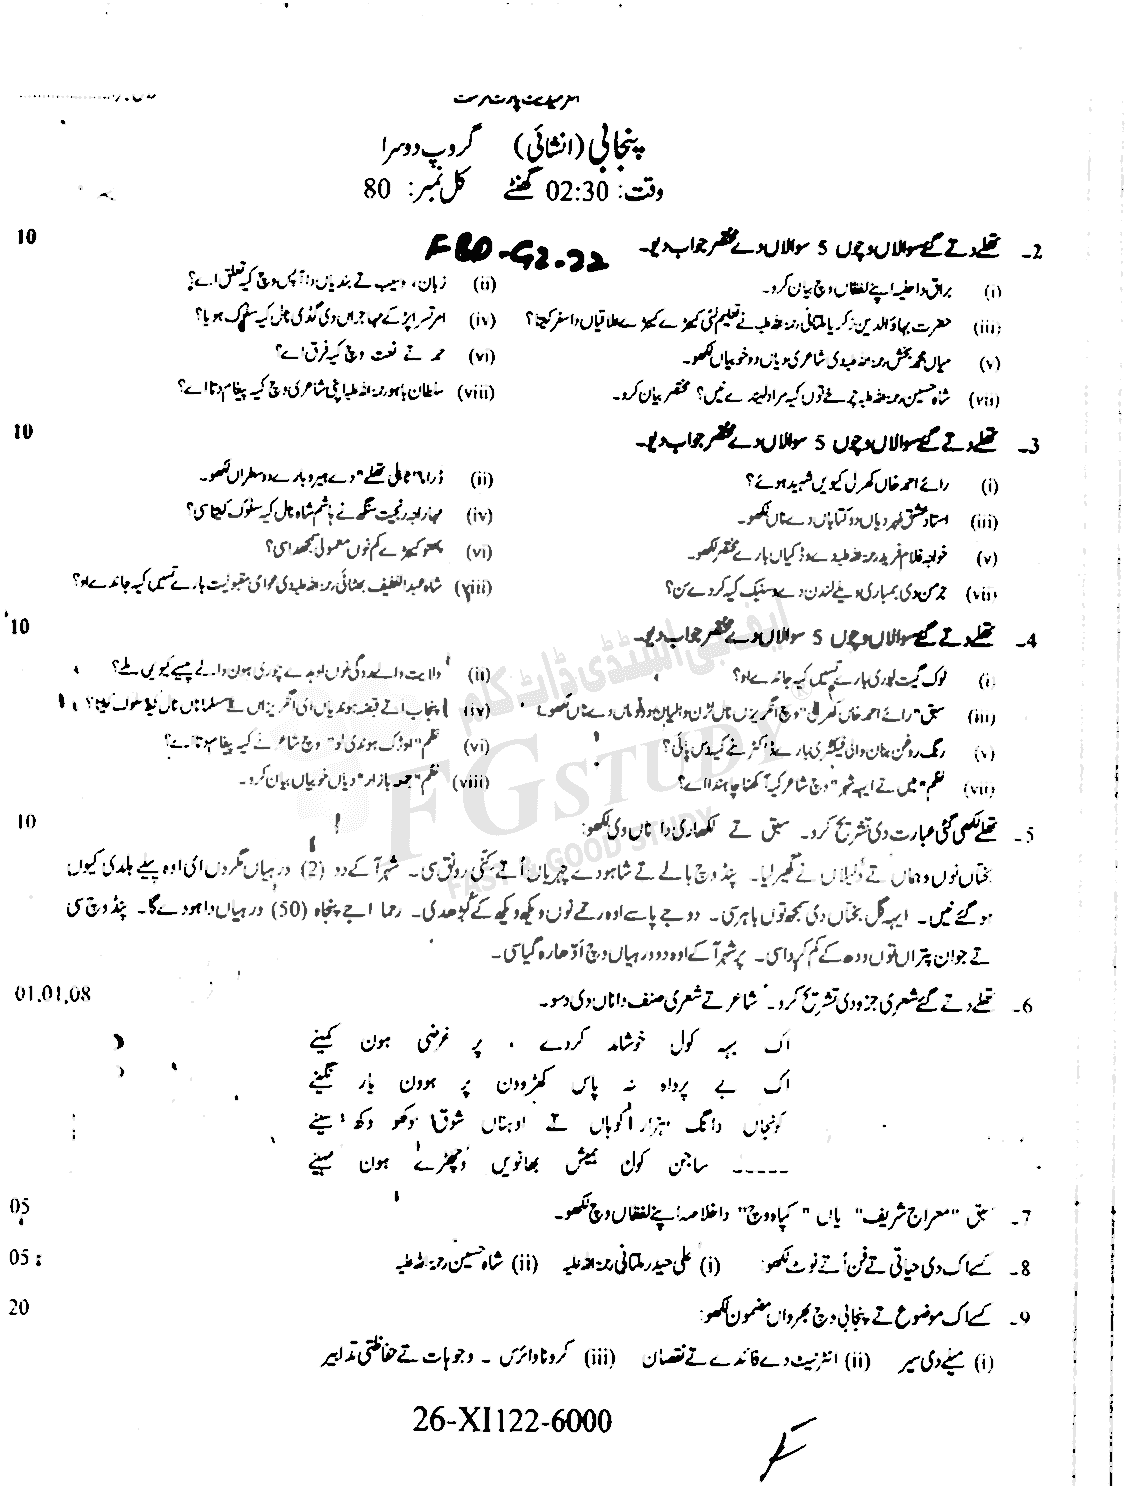 انٹرمیڈیٹ پارٹ فرسٹ
پنجابی (انشائی) گروپ دوسرا
وقت: 02:30 گھنٹے کل نمبر: 80
FBD-G2-22
2۔ تھلے دتے گئے سوالاں وچوں 5 سوالاں دے مختصر جواب دیو۔ 10
(i) براق دا حلیہ اپنے لفظاں وچ بیان کرو۔ (ii) زبان، وسیب تے بندیاں دا آپس وچ کیہ تعلق اے؟
(iii) حضرت بہاؤالدین زکریا ملتانی رحمۃ اللہ علیہ نے تعلیم لئی کیہڑے کیہڑے علاقیاں دا سفر کیتا؟ (iv) امرتسر اپڑ کے مہاجراں دی گڈی نال کیہ سلوک ہویا؟
(v) میاں محمد بخش رحمۃ اللہ علیہ دی شاعری دیاں دو خوبیاں لکھو۔ (vi) حمد تے نعت وچ کیہ فرق اے؟
(vii) شاہ حسین رحمۃ اللہ علیہ چرخے توں کیہ مراد لیندے نیں؟ مختصر بیان کرو۔ (viii) سلطان باہو رحمۃ اللہ علیہ اپنی شاعری وچ کیہ پیغام دتا اے؟
3۔ تھلے دتے گئے سوالاں وچوں 5 سوالاں دے مختصر جواب دیو۔ 10
(i) رائے احمد خاں کھرل کیویں شہید ہوئے؟ (ii) ڈراما "ٹاہلی تھلے" دے ہیرو بارے دو سطراں لکھو۔
(iii) استاد عشق لہر دیاں دو کتاباں دے ناں لکھو۔ (iv) مہاراجہ رنجیت سنگھ نے ہاشم شاہ نال کیہ سلوک کیتا سی؟
(v) خواجہ غلام فرید رحمۃ اللہ علیہ دے وڈکیاں بارے مختصر لکھو۔ (vi) بھٹو کیہڑے کم نوں معمولی سمجھدا سی؟
(vii) جرمن دی بمباری ویلے لندن دے وسنیک کیہ کردے سن؟ (viii) شاہ عبداللطیف بھٹائی رحمۃ اللہ علیہ دی عوامی مقبولیت بارے تسیں کیہ جاندے او؟
4۔ تھلے دتے گئے سوالاں وچوں 5 سوالاں دے مختصر جواب دیو۔ 10
(i) لوک گیت لوری بارے تسیں کیہ جاندے او؟ (ii) ولایت والے روگی نوں اوہدے چوری ہون والے پیسے کیویں ملے؟
(iii) سبق "رائے احمد خاں کھرل" وچ انگریزاں نال لڑن والیاں دو قوماں دے ناں لکھو۔ (iv) پنجاب اتے قبضہ ہوندیاں ای انگریزاں نے مسلماناں نال کیہ سلوک کیتا؟
(v) رنگ روغن بنان والی فیکٹری بارے ڈاکٹر نے کیہ دس پائی؟ (vi) نظم "اوڑک ہوندی لو" وچ شاعر نے کیہ پیغام دتا اے؟
(vii) نظم "میں تے ایہہ شہر" وچ شاعر کیہ کہنا چاہندا اے؟ (viii) نظم "جمعہ بازار" دیاں خوبیاں بیان کرو۔
5۔ تھلے لکھی گئی عبارت دی تشریح کرو۔ سبق تے لکھاری دا ناں وی لکھو: 10
بختاں نوں وہماں تے دلیلاں نے گھیر لیا۔ پنڈ وچ ہالے تے شاہو دے چہریاں اُتے کنی رونق سی۔ شہر آ کے دو (2) ورہیاں مگروں ای اوہ پیلے ہلدی کیوں
ہو گئے نیں۔ ایہہ گل بختاں دی سمجھ توں باہر سی۔ دوجے پاسے اوہ رحمے نوں ویکھ ویکھ کے کُڑھدی۔ رحما اجے پنجاہ (50) ورہیاں دا ہووے گا۔ پنڈ وچ سی
تے جوان پتراں توں ودھ کے کم کردا سی۔ پر شہر آ کے اوہ دو ورہیاں وچ اَدھا رہ گیا سی۔
6۔ تھلے دتے گئے شعری جز دی تشریح کرو۔ شاعر تے شعری صنف دا ناں وی دسو۔ 01,01,08
اک بہہ کول خوشامد کردے ، پر غرضی ہون کمینے
اک بے پرواہ نہ پاس کھڑوون پر ہوون یار نگینے
کونجاں وانگ ہزار کوہاں تے اوہناں شوق وکھو وکھ سینے
ساجن کول ہمیش بھانویں وچھڑے ہون مہینے
7۔ سبق "معراج شریف" یاں "کپاہ وچ" دا خلاصہ اپنے لفظاں وچ لکھو۔ 05
8۔ کسے اک دی حیاتی تے فن اُتے نوٹ لکھو: (i) علی حیدر ملتانی رحمۃ اللہ علیہ (ii) شاہ حسین رحمۃ اللہ علیہ 05
9۔ کسے اک موضوع تے پنجابی وچ بھرواں مضمون لکھو: 20
(i) میلے دی سیر (ii) انٹرنیٹ دے فائدے تے نقصان (iii) کرونا وائرس ۔ وجوہات تے حفاظتی تدابیر
26-XI122-6000
F
ایف جی اسٹڈی ڈاٹ کام
FGSTUDY
GOOD STUDY